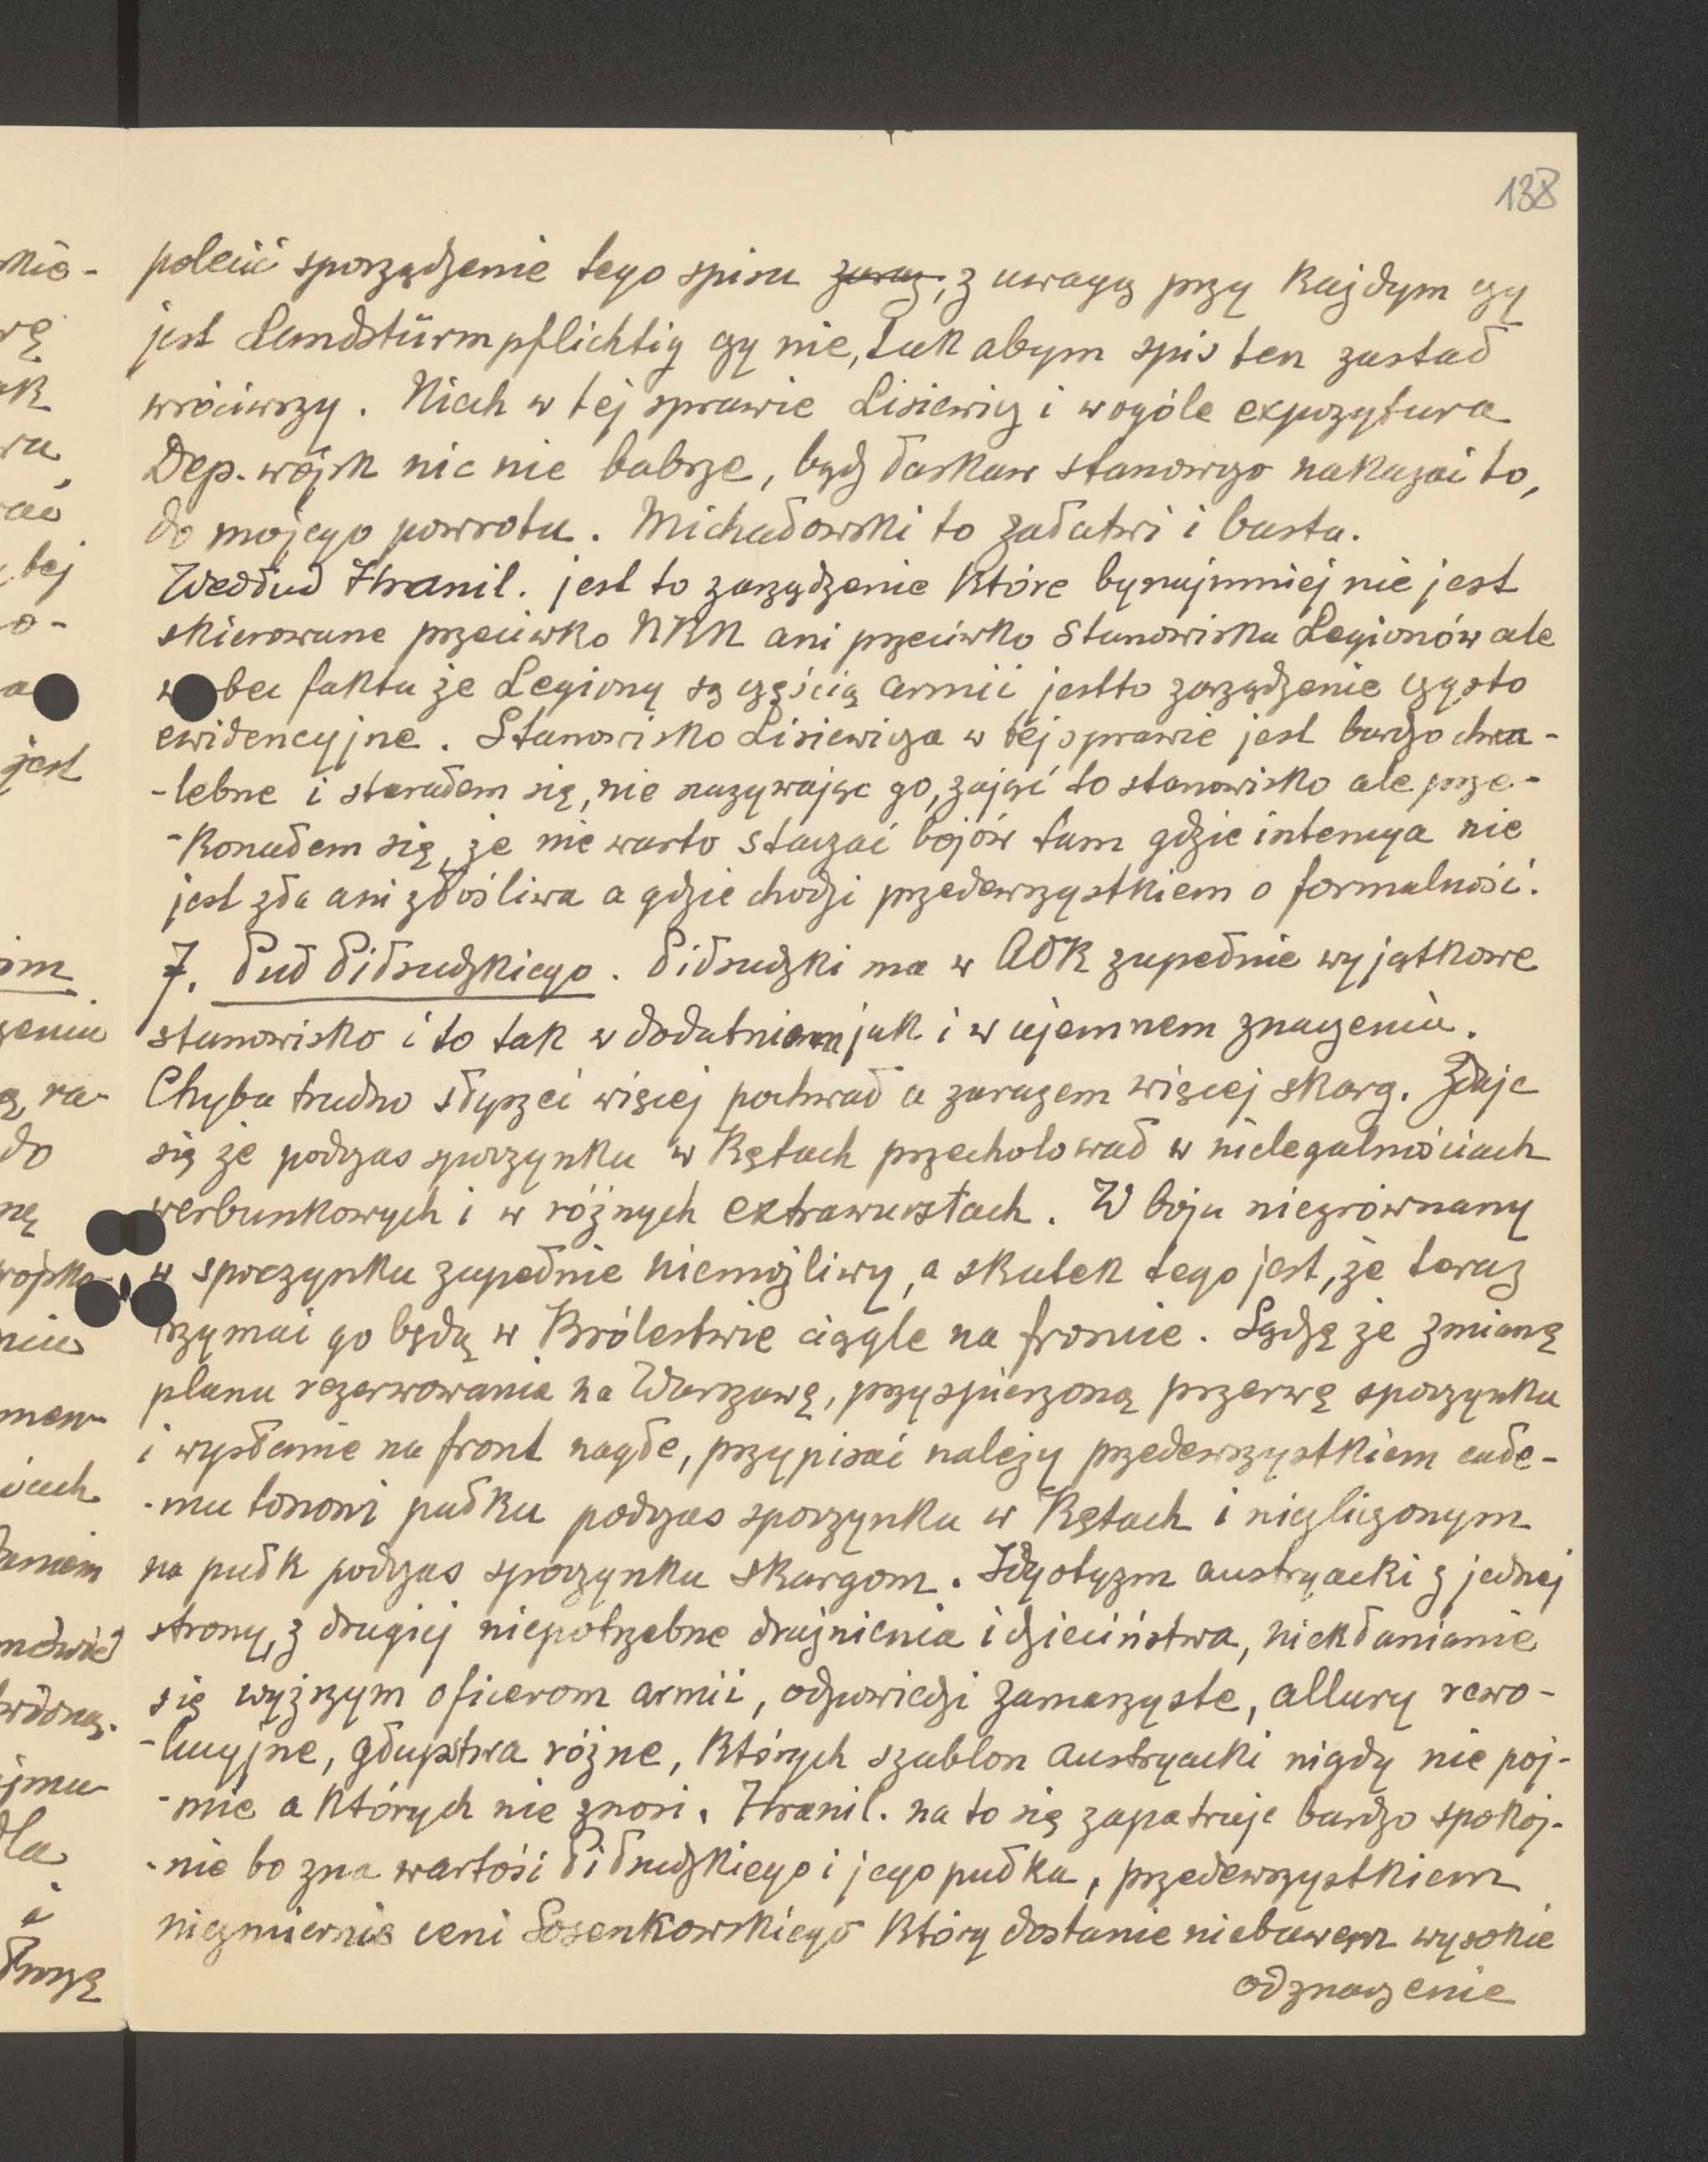 138
polecić sporządzenie tego spisu zaraz, z uwagą przy każdym czy
jest Landstürmpflichtig czy nie, tak abym spis ten zastał
wróciwszy. Niech w tej sprawie Lisiewicz i wogóle expozytura
Dep. wojsk nic nie babrze, bądź łaskaw stanowczo nakazać to,
do mojego powrotu. Michałowski to załatwi i basta.
Według Hranil. jest to zarządzenie które bynajmniej nie jest
skierowane przeciwko NKN ani przeciwko stanowisku Legionów ale
wobec faktu że Legiony są częścią armii jestto zarządzenie czysto
ewidencyjne. Stanowisko Lisiewicza w tej sprawie jest bardzo chwa-
-lebne i starałem się, nie nazywając go, zająć to stanowisko ale prze-
-konałem się, że nie warto staczać bojów tam gdzie intencya nie
jest zła ani złośliwa a gdzie chodzi przedewszystkiem o formalność.
7. Puł Piłsudzkiego. Piłsudzki ma w AOK zupełnie wyjątkowe
stanowisko i to tak w dodatniem jak i w ujemnem znaczeniu.
Chyba trudno słyszeć więcej pochwał a zarazem więcej skarg. Zdaje
się że podczas spoczynku w Kętach przecholował w nielegalnościach
werbunkowych i w różnych extrawurstach. W boju niezrównany
w spoczynku zupełnie niemożliwy, a skutek tego jest, że teraz
trzymać go będą w Królestwie ciągle na froncie. Sądzę że zmianę
planu rezerwowania na Warszawę, przyspieszoną przerwę spoczynku
i wysłanie na front nagłe, przypisać należy przedewszystkiem całe-
-mu tonowi pułku podczas spoczynku w Kętach i niezliczonym
na pułk podczas spoczynku skargom. Idyotyzm austryacki z jednej
strony, z drugiej niepotrzebne drażnienia i dzieciństwa, niekłanianie
się wyższym oficerom armii, odpowiedzi zamaszyste, allury rewo-
-lucyjne, głupstwa różne, których szablon austryacki nigdy nie poj-
-mie a których nie znosi. Hranil. na to się zapatruje bardzo spokoj-
-nie bo zna wartość Piłsudzkiego i jego pułku, przedewszystkiem
niezmiernie ceni Sosenkowskiego który dostanie niebawem wysokie
odznaczenie